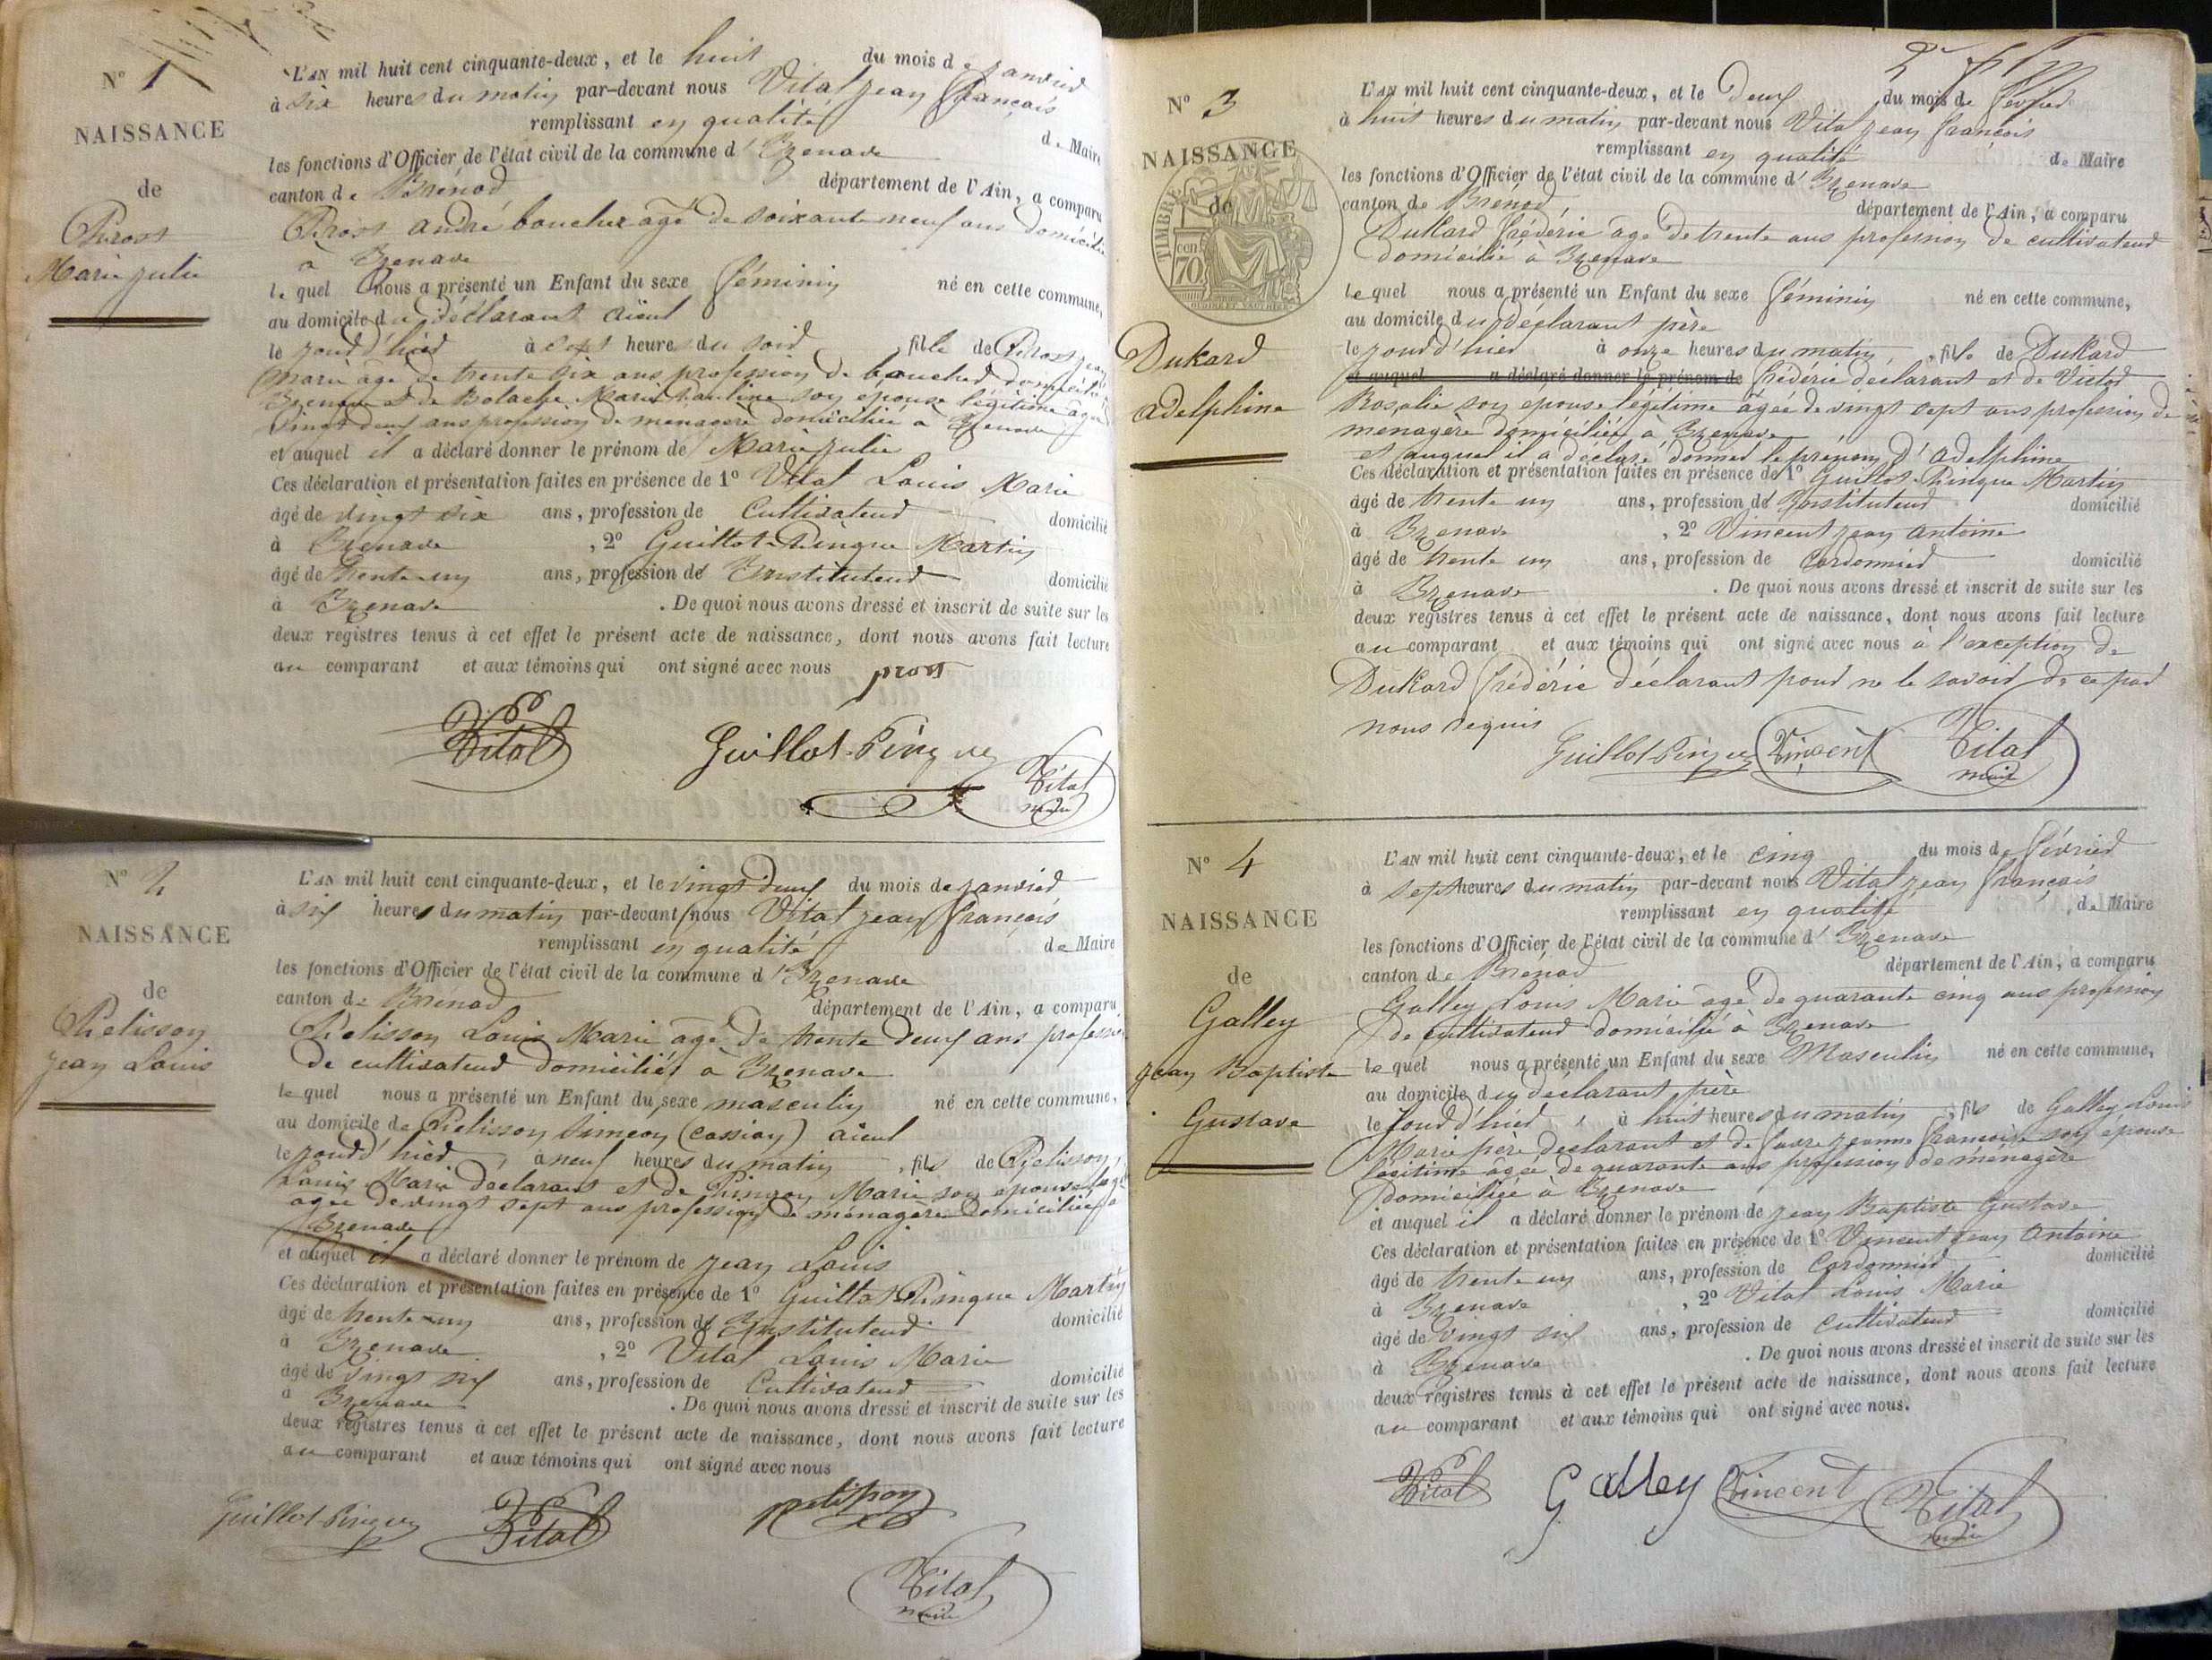 N° 1
NAISSANCE
de
Prost
Marie Julie
L'AN mil huit cent cinquante-deux, et le huit du mois de janvier
à six heures du matin par-devant nous Vital jean françois
remplissant en qualité de Maire
les fonctions d'Officier de l'état civil de la commune d' Izenave
canton de Brénod département de l'Ain, a comparu
Prost andré boucher agé de soixante neuf ans domicilié
à Izenave
le quel nous a présenté un Enfant du sexe féminin né en cette commune,
au domicile du déclarant aïeul
le jour d'hier à sept heures du soir fille de Prost jean
Marie agé de trente six ans profession de boucher domicilié à
Izenave et de Bolache Marie Pauline son épouse légitime agée
vingt deux ans profession de menagère domiciliée à Izenave
et auquel il a déclaré donner le prénom de Marie julie
Ces déclaration et présentation faites en présence de 1° Vital Louis Marie
âgé de vingt six ans, profession de Cultivateur domicilié
à Izenave , 2° Guillot-Pingue Martin
âgé de trente-un ans, profession d' Instituteur domicilié
à Izenave . De quoi nous avons dressé et inscrit de suite sur les
deux registres tenus à cet effet le présent acte de naissance, dont nous avons fait lecture
au comparant et aux témoins qui ont signé avec nous prost
Vital Guillot-Pingue Vital
maire
N° 2
NAISSANCE
de
Pelisson
jean Louis
L'AN mil huit cent cinquante-deux, et le vingt deux du mois de janvier
à six heures du matin par-devant nous Vital jean françois
remplissant en qualité de Maire
les fonctions d'Officier de l'état civil de la commune d' Izenave
canton de Brénod département de l'Ain, a comparu
Pelisson Louis Marie agé de trente deux ans profession
de cultivateur domicilié à Izenave
le quel nous a présenté un Enfant du sexe masculin né en cette commune,
au domicile de Pelisson Simeon (cassian) aïeul
le jour d'hier, à neuf heures du matin, fils de Pelisson
Louis Marie déclarant et de Pingon Marie son épouse
agée de vingt sept ans profession de ménagère domiciliée à
Izenave
et auquel il a déclaré donner le prénom de jean Louis
Ces déclaration et présentation faites en présence de 1° Guillot-Pingue Martin
âgé de trente-un ans, profession d' Instituteur domicilié
à Izenave , 2° Vital Louis Marie
âgé de vingt six ans, profession de Cultivateur domicilié
à Izenave . De quoi nous avons dressé et inscrit de suite sur les
deux registres tenus à cet effet le présent acte de naissance, dont nous avons fait lecture
au comparant et aux témoins qui ont signé avec nous
Guillot-Pingue Vital pelisson
Vital
maire
N° 3
NAISSANCE
de
TIMBRE
70
Dukard
adelphine
L'AN mil huit cent cinquante-deux, et le Deux du mois de février
à huit heures du matin par-devant nous Vital jean françois
remplissant en qualité de Maire
les fonctions d'Officier de l'état civil de la commune d' Izenave
canton de Brénod département de l'Ain, a comparu
Dukard frédéric agé de trente ans profession de cultivateur
domicilié à Izenave
le quel nous a présenté un Enfant du sexe féminin né en cette commune,
au domicile du déclarant père
le jour d'hier à onze heures du matin, fille de Dukard
et auquel a déclaré donner le prénom de frédéric déclarant et de Victor
Rosalie son épouse légitime agée de vingt sept ans profession de
menagère domiciliée à Izenave
et auquel il a déclaré donner le prénom d'adelphine
Ces déclaration et présentation faites en présence de 1° Guillot-Pingue Martin
âgé de trente un ans, profession d' Instituteur domicilié
à Izenave , 2° Vincent jean antoine
âgé de trente un ans, profession de Cordonnier domicilié
à Izenave . De quoi nous avons dressé et inscrit de suite sur les
deux registres tenus à cet effet le présent acte de naissance, dont nous avons fait lecture
au comparant et aux témoins qui ont signé avec nous à l'exception de
Dukard frédéric déclarant pour ne le savoir de ce par
nous requis
Guillot-Pingue Vincent Vital
maire
N° 4
NAISSANCE
de
Galley
jean Baptiste
Gustave
L'AN mil huit cent cinquante-deux, et le cinq du mois de février
à sept heures du matin par-devant nous Vital jean françois
remplissant en qualité de Maire
les fonctions d'Officier de l'état civil de la commune d' Izenave
canton de Brénod département de l'Ain, a comparu
Galley Louis Marie agé de quarante cinq ans profession
de cultivateur domicilié à Izenave
le quel nous a présenté un Enfant du sexe Masculin né en cette commune,
au domicile du déclarant père
le jour d'hier, à huit heures du matin, fils de Galley Louis
Marie père déclarant et de favre jeanne françoise son épouse
légitime agée de quarante ans profession de ménagère
domiciliée à Izenave
et auquel il a déclaré donner le prénom de jean Baptiste Gustave
Ces déclaration et présentation faites en présence de 1° Vincent jean antoine
âgé de trente un ans, profession de Cordonnier domicilié
à Izenave , 2° Vital Louis Marie
âgé de vingt six ans, profession de cultivateur domicilié
à Izenave . De quoi nous avons dressé et inscrit de suite sur les
deux registres tenus à cet effet le présent acte de naissance, dont nous avons fait lecture
au comparant et aux témoins qui ont signé avec nous.
Vital Galley Vincent Vital
maire